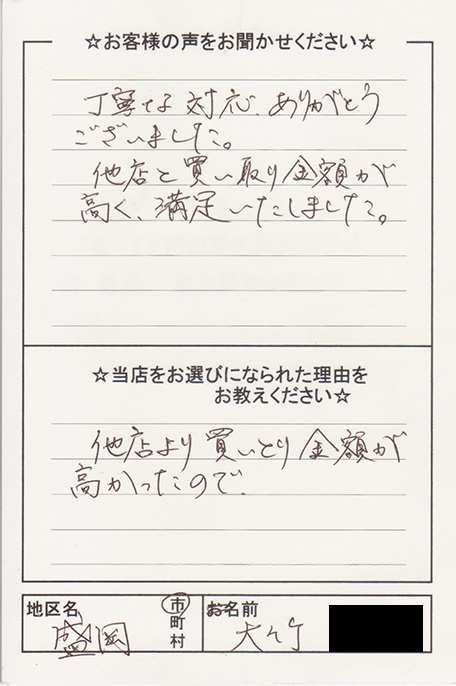 ☆お客様の声をお聞かせください☆
丁寧な対応、ありがとう
ございました。
他店と買い取り金額が
高く、満足いたしました。
☆当店をお選びになられた理由を
お教えください☆
他店より買いとり金額が
高かったので。
地区名
盛岡
市
町
村
お名前
大竹